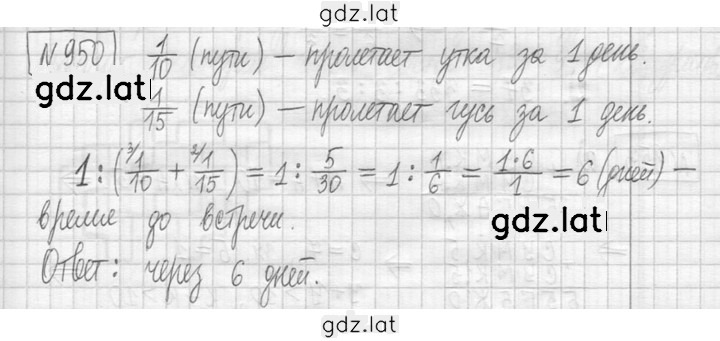 gdz.lat
№950 1/10 (пути) — пролетает утка за 1 день.
gdz.lat
1/15 (пути) — пролетает гусь за 1 день.
1 : (³⁄1/10 + ²⁄1/15) = 1 : 5/30 = 1 : 1/6 = 1·6/1 = 6 (дней) —
время до встречи.
gdz.lat
Ответ: через 6 дней.
gdz.lat